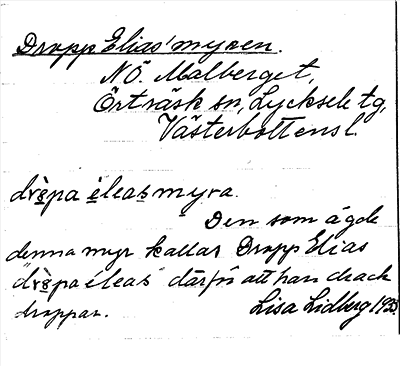 Dropp Elias'myren.
NÖ. Malberget,
Örträsk sn, Lycksele tg,
Västerbottens l.
drèpa éleasmyra.
Den som ägde
denna myr kallas Dropp Elias
"drèpa éleas" därför att han drack
droppar. Lisa Lidberg 1935.